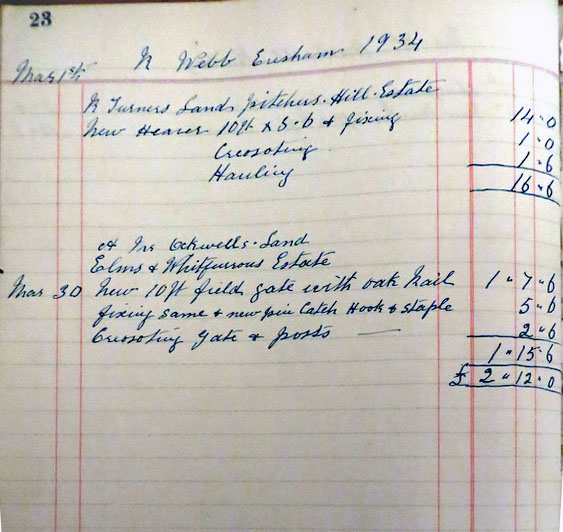 23
Mar 1st N Webb Evesham 1934
N Turners Land Pitchers Hill Estate
New Heaver 10ft x 5.6 & fixing 14 " 0
Creosoting 1 " 0
Hauling 1 " 6
16 " 6
at Mrs Ockwells Land
Elms & Whitfurrous Estate
Mar 30 New 10ft field gate with oak Rail 1 " 7 " 6
fixing same & new pin Catch Hook & Staple 5 " 6
Creosoting Gate & posts — 2 " 6
1 " 15 " 6
£ 2 " 12 " 0